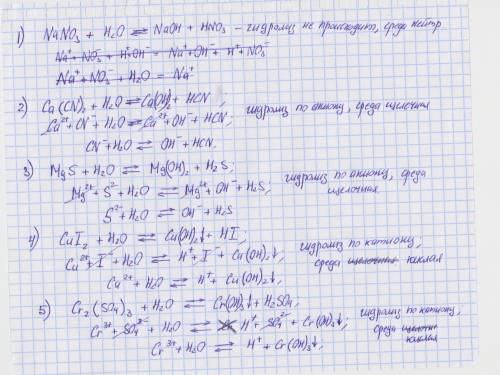 1) NaNO₃ + H₂O ⇌ NaOH + HNO₃ – гидролиз не происходит, среда нейтр
Na⁺ + NO₃⁻ + H⁺OH⁻ = Na⁺ + OH⁻ + H⁺ + NO₃⁻
Na⁺ + NO₃⁻ + H₂O = Na⁺
2) Ca(CN)₂ + H₂O ⇌ Ca(OH)₂ + HCN ;
гидролиз по аниону, среда щелочная
Ca²⁺ + CN⁻ + H₂O ⇌ Ca²⁺ + OH⁻ + HCN ;
CN⁻ + H₂O ⇌ OH⁻ + HCN.
3) MgS + H₂O ⇌ Mg(OH)₂ + H₂S ;
гидролиз по аниону, среда
Mg²⁺ + S²⁻ + H₂O ⇌ Mg²⁺ + OH⁻ + H₂S,
щелочная
S²⁻ + H₂O ⇌ OH⁻ + H₂S
4) CuI₂ + H₂O ⇌ Cu(OH)₂↓ + HI ;
гидролиз по катиону;
Cu²⁺ + I⁻ + H₂O ⇌ H⁺ + I⁻ + Cu(OH)₂↓ ;
среда щелочная кислая
Cu²⁺ + H₂O ⇌ H⁺ + Cu(OH)₂↓ ;
5) Cr₂(SO₄)₃ + H₂O ⇌ Cr(OH)₃↓ + H₂SO₄
гидролиз по катиону,
Cr³⁺ + SO₄²⁻ + H₂O ⇌ H⁺ + SO₄²⁻ + Cr(OH)₃↓ ;
среда кислая
Cr³⁺ + H₂O ⇌ H⁺ + Cr(OH)₃↓ ;